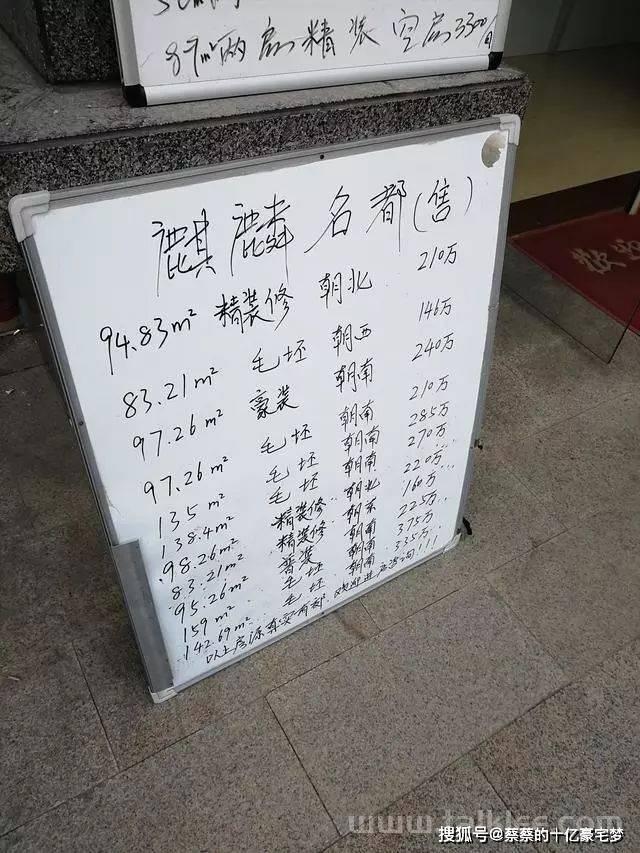 87m²两房精装空房3300/月
麒麟名都(售)
94.83m² 精装修 朝北 210万
83.21m² 毛坯 朝西 146万
97.26m² 豪装 朝南 240万
97.26m² 毛坯 朝南 210万
135m² 毛坯 朝南 285万
138.4m² 毛坯 朝南 270万
98.26m² 精装修 朝北 220万
83.21m² 精装修 朝东 160万
95.26m² 普装 朝南 225万
159m² 毛坯 朝南 375万
142.69m² 毛坯 朝南 335万
以上房源真实有效,欢迎进店咨询!!!
www.talklee.com
搜狐号@蔡蔡的十亿豪宅梦